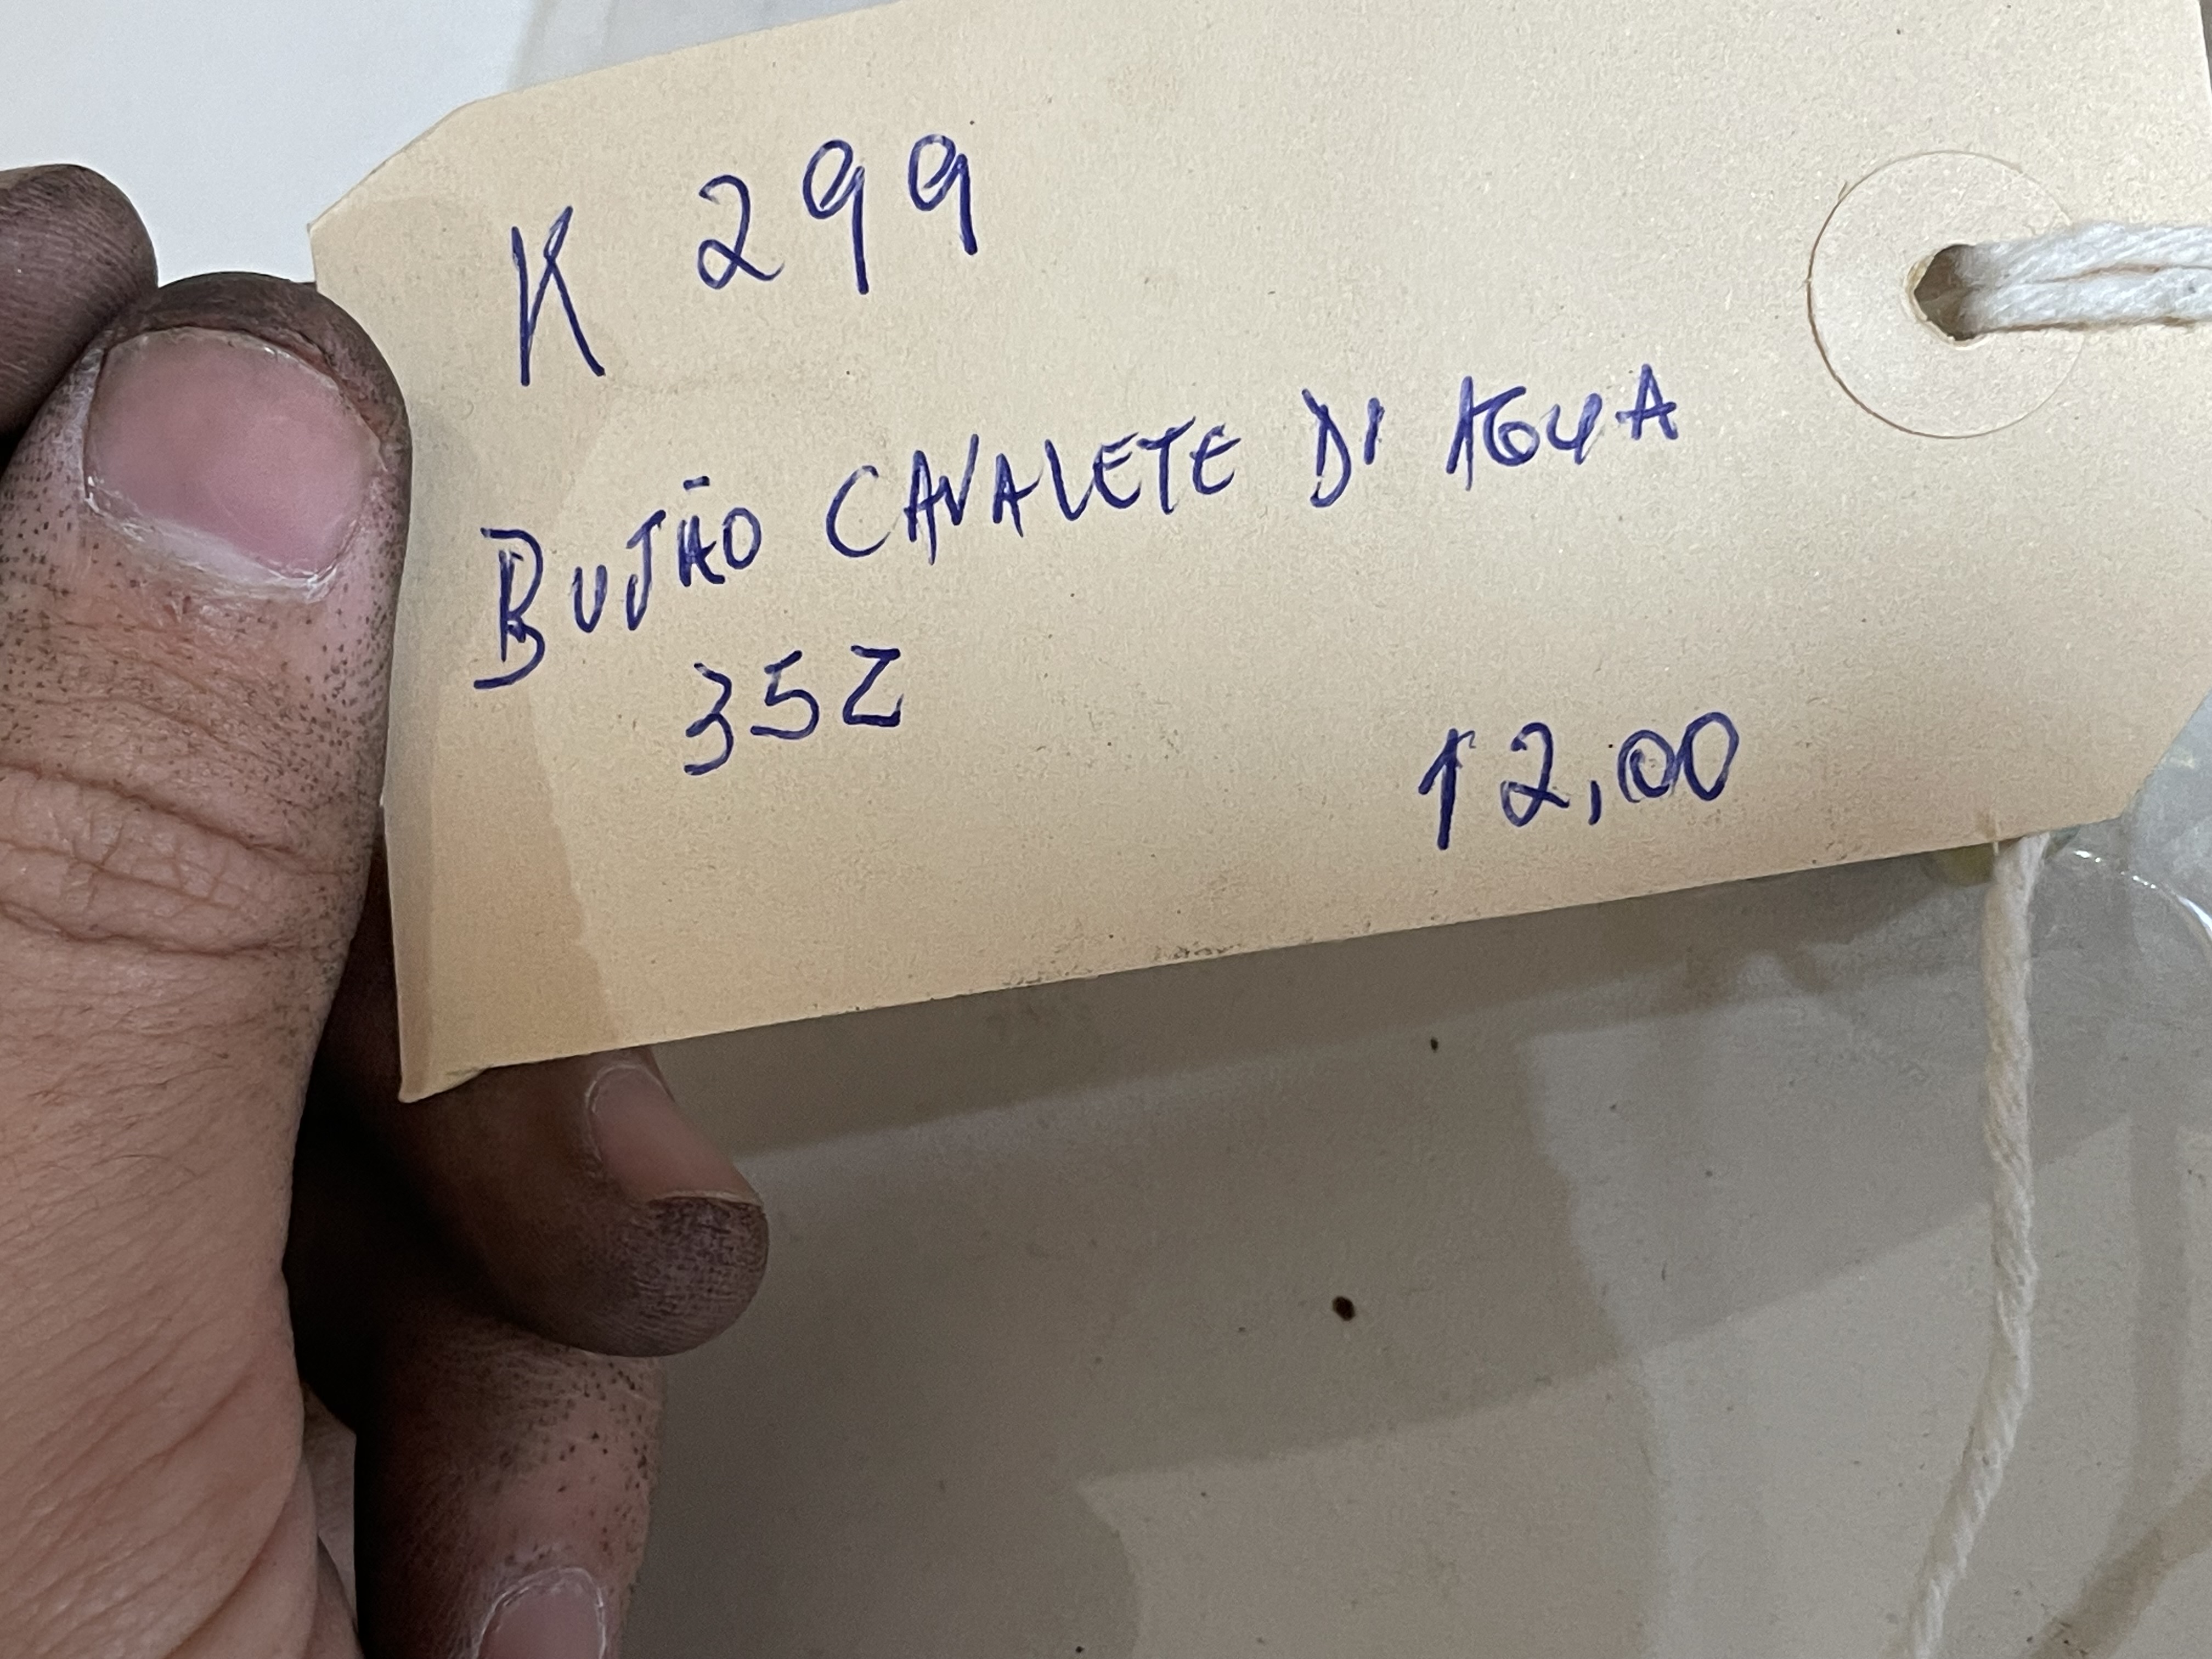 K 299
BUJÃO CAVALETE DI AGUA
352 12,00